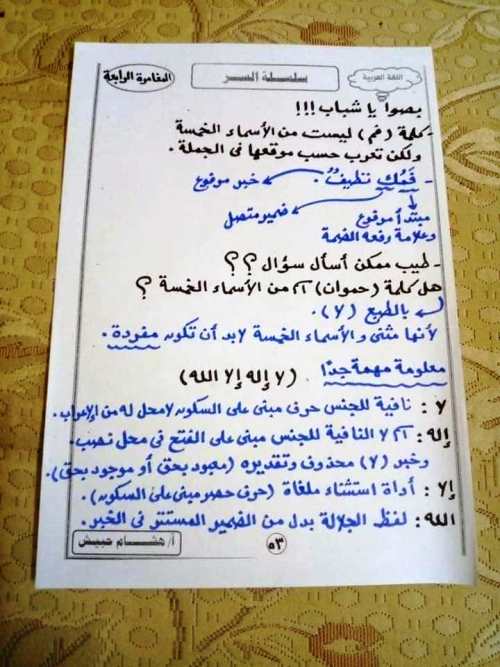 اللغة العربية
سلسلة السر
المغامرة الرابعة
بصوا يا شباب !!!
- كلمة (فم) ليست من الأسماء الخمسة
ولكن تعرب حسب موقعها في الجملة .
- فَمُكَ نظيفٌ . خبر مرفوع
ضمير متصل
مبتدأ مرفوع
وعلامة رفعه الضمة
- طيب ممكن أسأل سؤال ؟ ؟
هل كلمة (حموان) من الأسماء الخمسة ؟
بالطبع (لا) .
لأنها مثنى والأسماء الخمسة لابد أن تكون مفردة .
معلومة مهمة جدًا (لا إله إلا الله)
لا : نافية للجنس حرف مبنى على السكون لا محل له من الإعراب .
إله : اسم لا النافية للجنس مبنى على الفتح في محل نصب .
وخبر (لا) محذوف وتقديره (معبود بحق أو موجود بحق) .
إلا : أداة استثناء ملغاة (حرف حصر مبنى على السكون) .
الله : لفظ الجلالة بدل من الضمير المستتر في الخبر .
أ/ هشام حبيش
٥٣